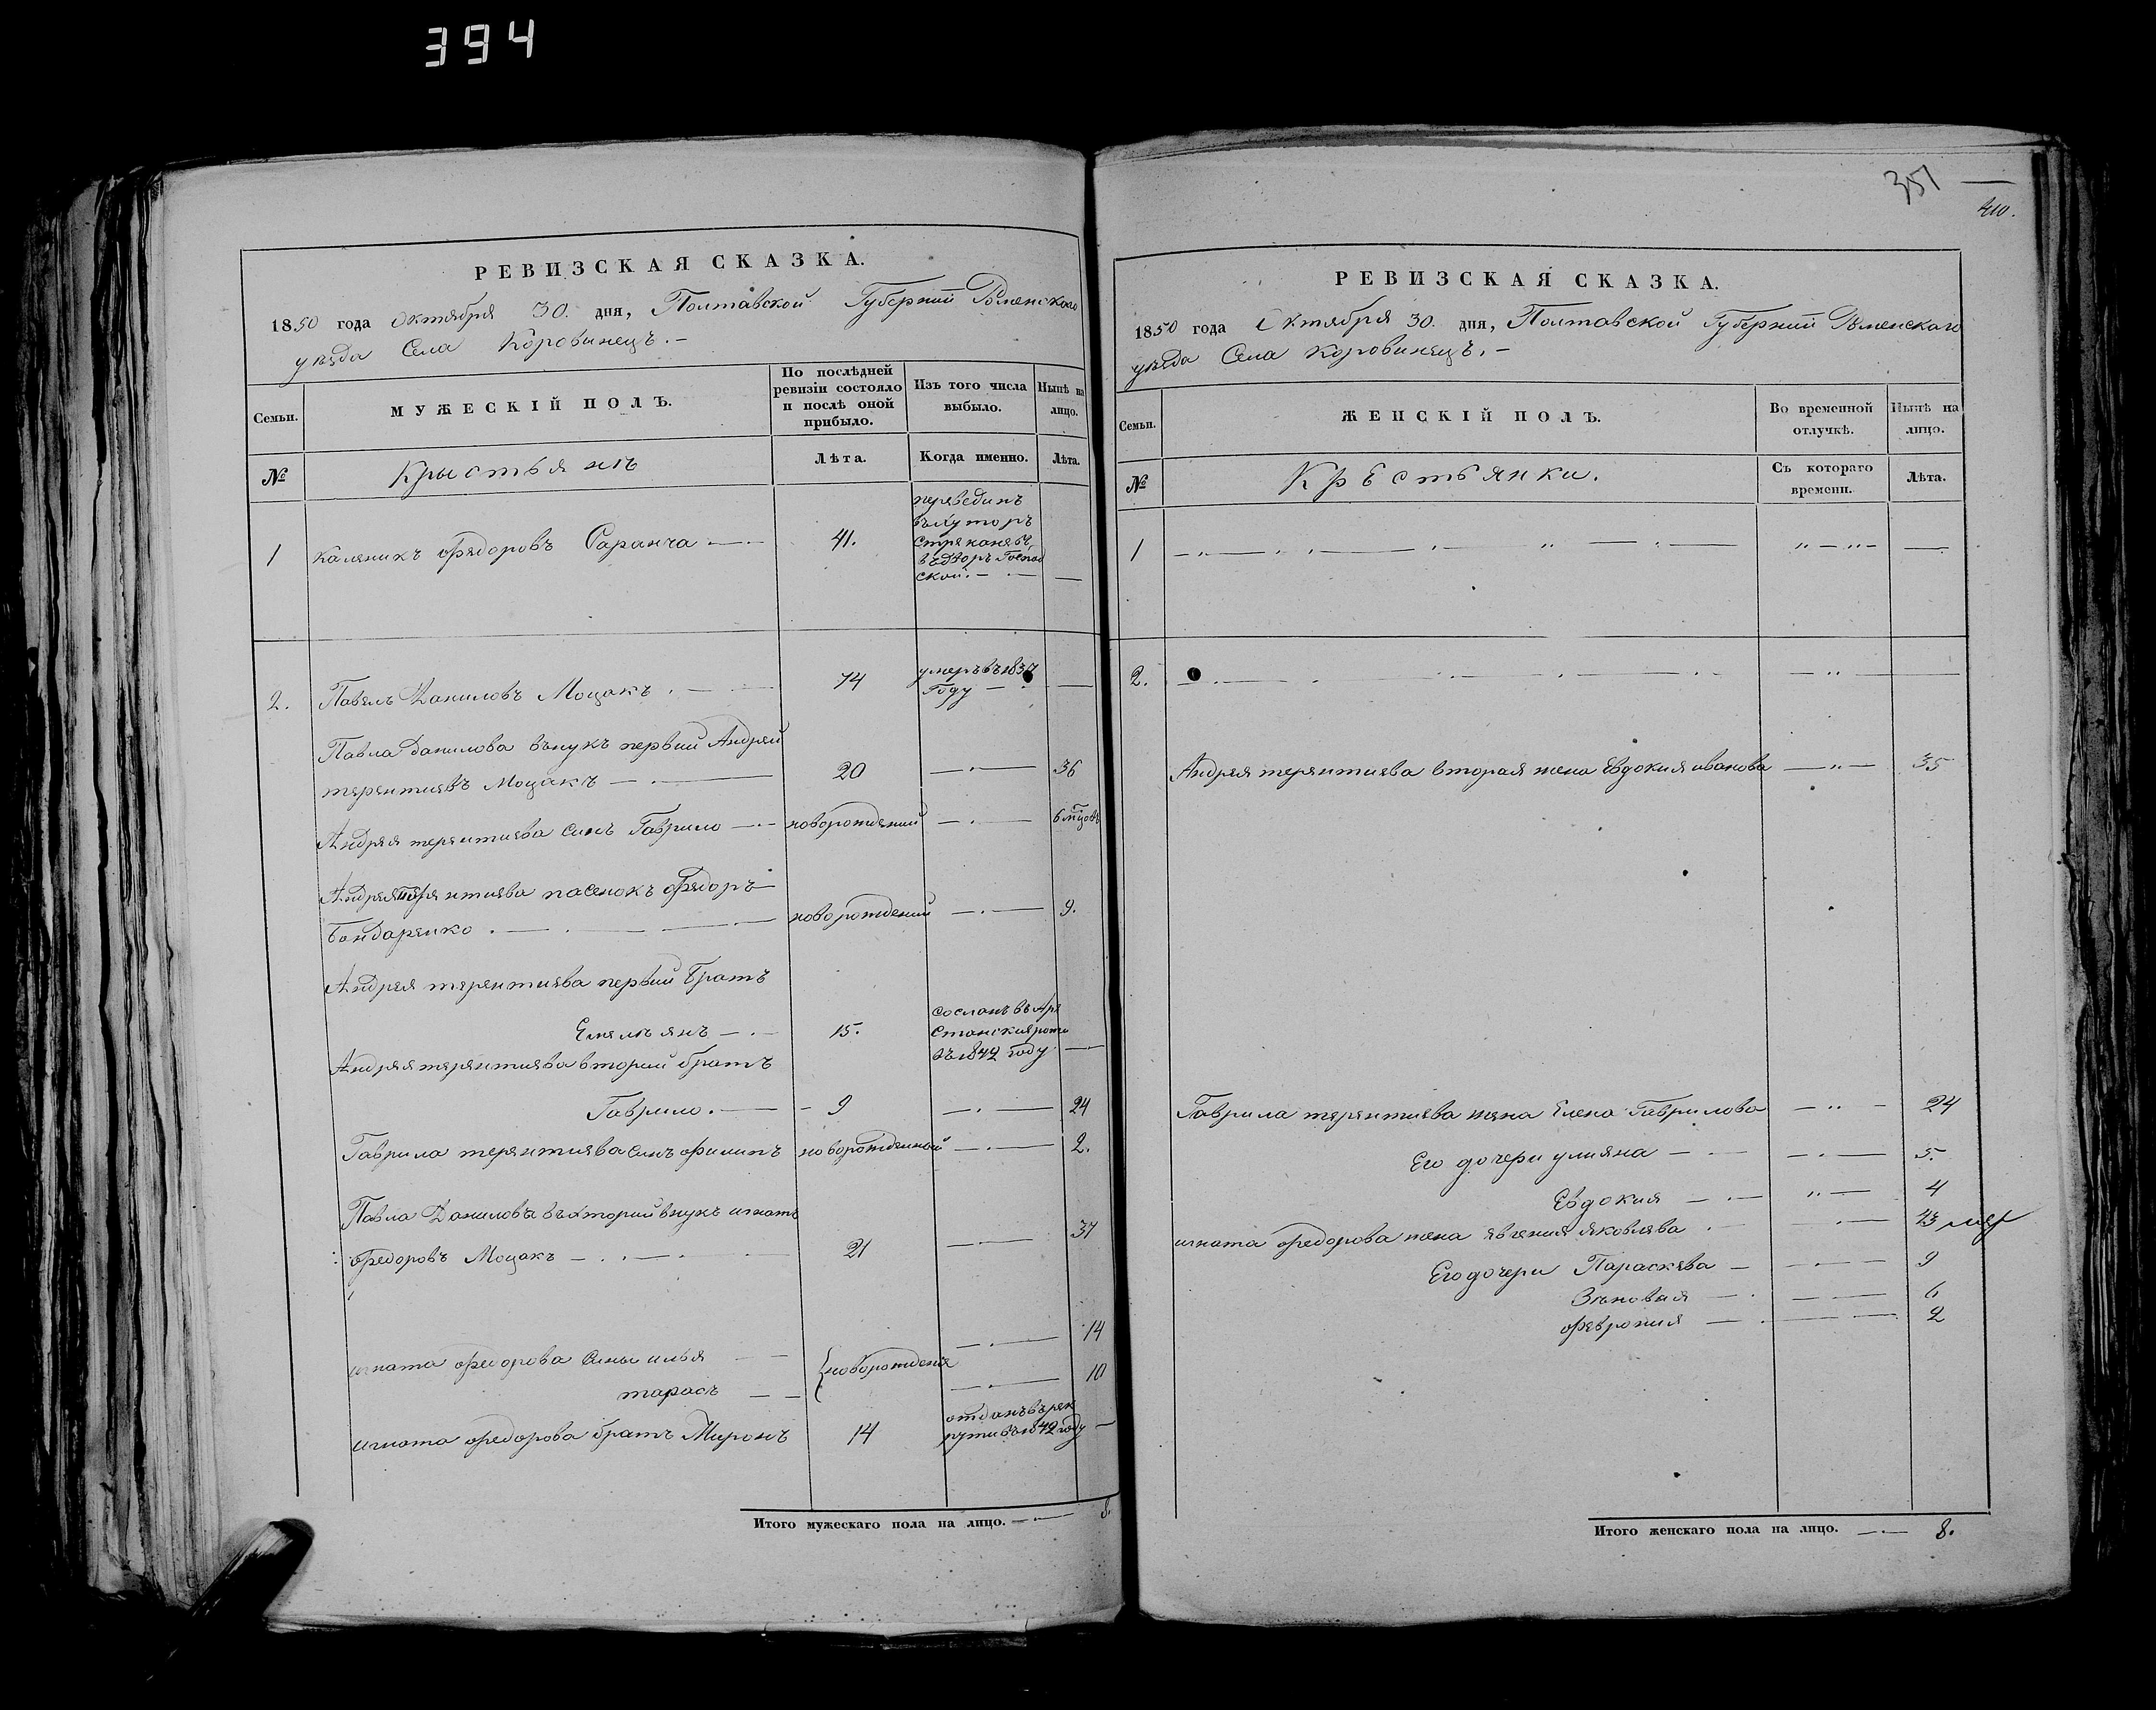 394
РЕВИЗСКАЯ СКАЗКА.
1850 года Октября 30. дня, Полтавской Губернии Роменского
уезда Села Коровинецъ.-
Семьи.
МУЖЕСКІЙ ПОЛЪ.
По послѣдней ревизіи состояло и послѣ оной прибыло.
Изъ того числа выбыло.
Нынѣ на лицо.
№
Крыстьянъ
Лѣта.
Когда именно.
Лѣта.
1
каленикъ федоровъ Саранча
41.
перевединъ
въ Хуторъ
въ дворъ Господ
ской.
2.
Павелъ Даниловъ Моцакъ
74
умеръ въ 1837
Году
Павла данилова внукъ первий Андрей
терентиевъ Моцакъ
20
36
Андрея терентиева синъ Гаврило
новорождений
6 мцовъ
Андрея терентиева пасенокъ федоръ
Бондаренко
новорождений
9.
Андрея терентиева первий Братъ
Емельянъ
15.
сосланъ въ Аре
станския роти
въ 1842 году
Андрея терентиева вторий братъ
Гаврило.
9
24
Гаврила терентиева синъ филипъ
новорожденний
2.
Павла Данилова въторий внукъ игнатъ
федоровъ Моцакъ
21
37
игната федорова Сины илья
14
новорождения
тарасъ
10
игната федорова братъ Миронъ
14
отданъ въ рек
рути въ 1842 году
Итого мужескаго пола на лицо.
8.
351
410.
РЕВИЗСКАЯ СКАЗКА.
1850 года Октября 30. дня, Полтавской Губернии Роменскаго
уезда Села Коровинецъ.-
Семьи.
ЖЕНСКІЙ ПОЛЪ.
Во временной отлучкѣ.
Нынѣ на лицо.
№
Крестьянки.
Съ котораго времени.
Лѣта.
1
2.
Андрея терентиева вторая жена Евдокия иванова
35
Гаврила терентиева жена Елена Гаврилова
24
Его дочери улияна
5.
Евдокия
4
игната федорова жена явгения яковлева
43
Его дочери Параскева
9
Зѣновия
6
феврония
2
Итого женскаго пола на лицо.
8.